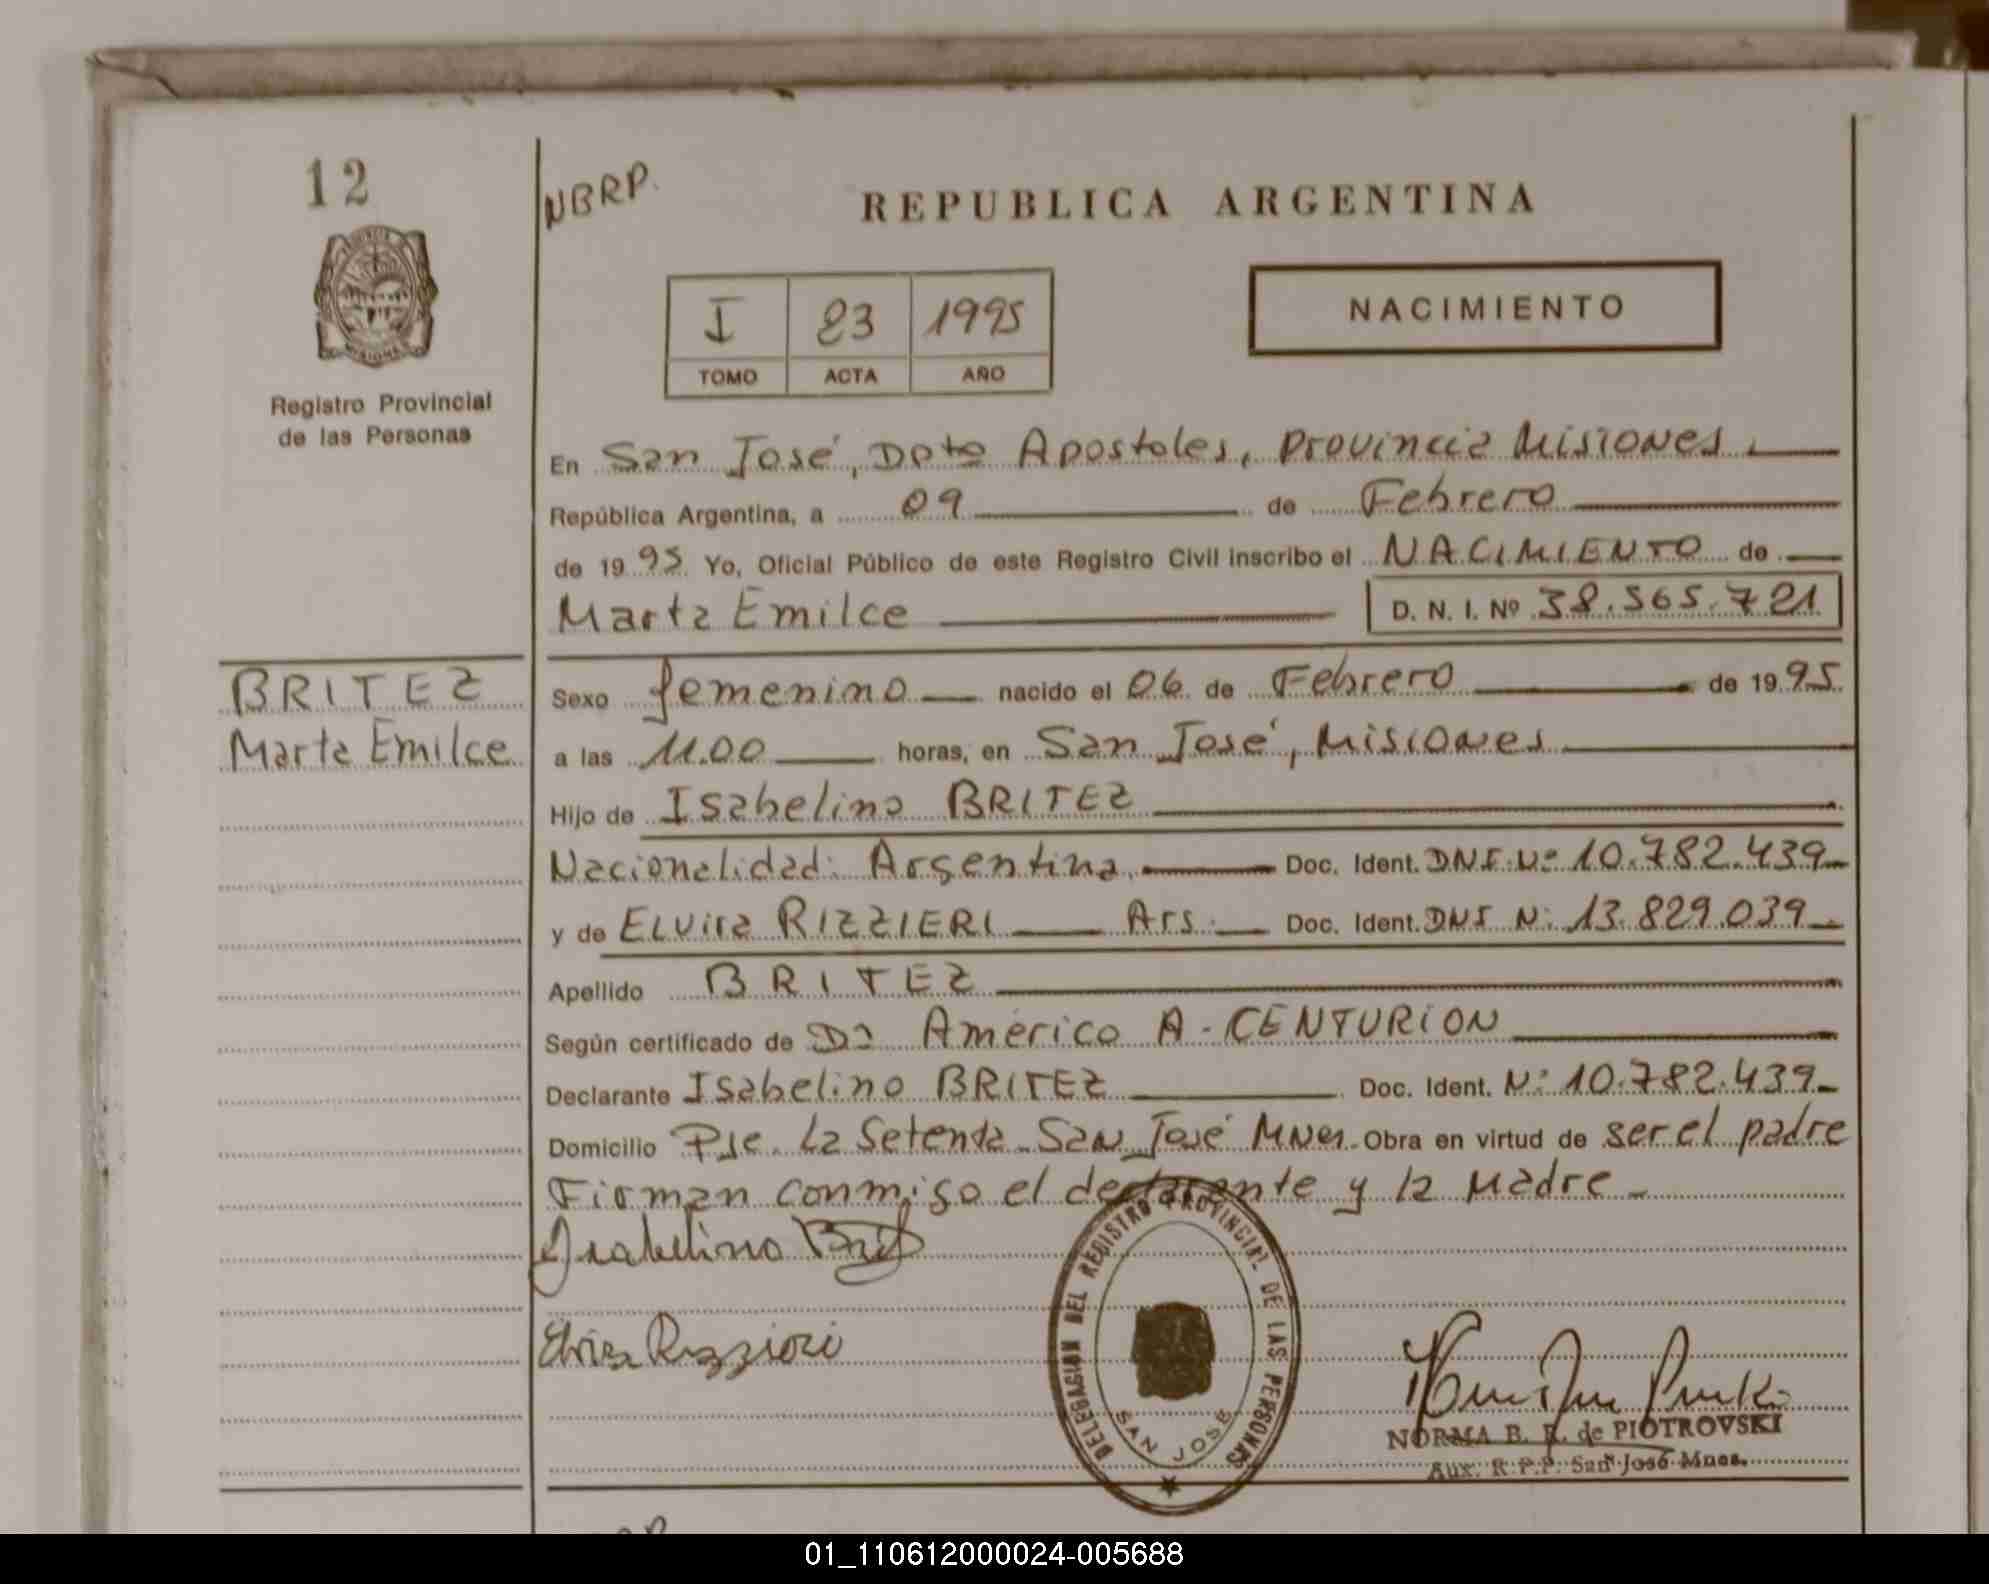 12
NBRP.
REPUBLICA ARGENTINA
I 23 1995
TOMO ACTA AÑO
NACIMIENTO
Registro Provincial
de las Personas
En San José, Dpto Apostoles, provincia Misiones.
República Argentina, a 09 de Febrero
de 1995 Yo, Oficial Público de este Registro Civil inscribo el NACIMIENTO de
Marta Emilce D. N. I. Nº 38.565.721
BRITEZ
Marta Emilce
Sexo femenino nacido el 06 de Febrero de 1995
a las 11.00 horas, en San José, Misiones
Hijo de Isabelino BRITEZ
Nacionalidad: Argentina. Doc. Ident. DNI Nº 10.782.439
y de ELVira RIZZIERI Arg. Doc. Ident. DNI N: 13.829.039
Apellido BRITEZ
Según certificado de Américo A. CENTURION
Declarante Isabelino BRITEZ Doc. Ident. Nº 10.782.439
Domicilio Pje. La Setenta San José Mnes. Obra en virtud de ser el padre
Firman conmigo el declarante y la Madre
Isabelino Britez
Elvira Rizzieri
DELEGACION DEL REGISTRO PROVINCIAL DE LAS PERSONAS
SAN JOSE
NORMA B. R. de PIOTROVSKI
Aux. R.P.P. San José Mnes.
01_110612000024-005688